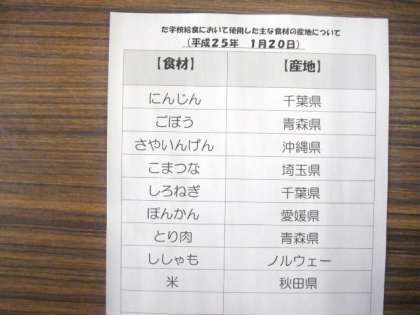 た学校給食において使用した主な食材の産地について
（平成25年　1月20日）
【食材】　【産地】
にんじん　千葉県
ごぼう　青森県
さやいんげん　沖縄県
こまつな　埼玉県
しろねぎ　千葉県
ぽんかん　愛媛県
とり肉　青森県
ししゃも　ノルウェー
米　秋田県